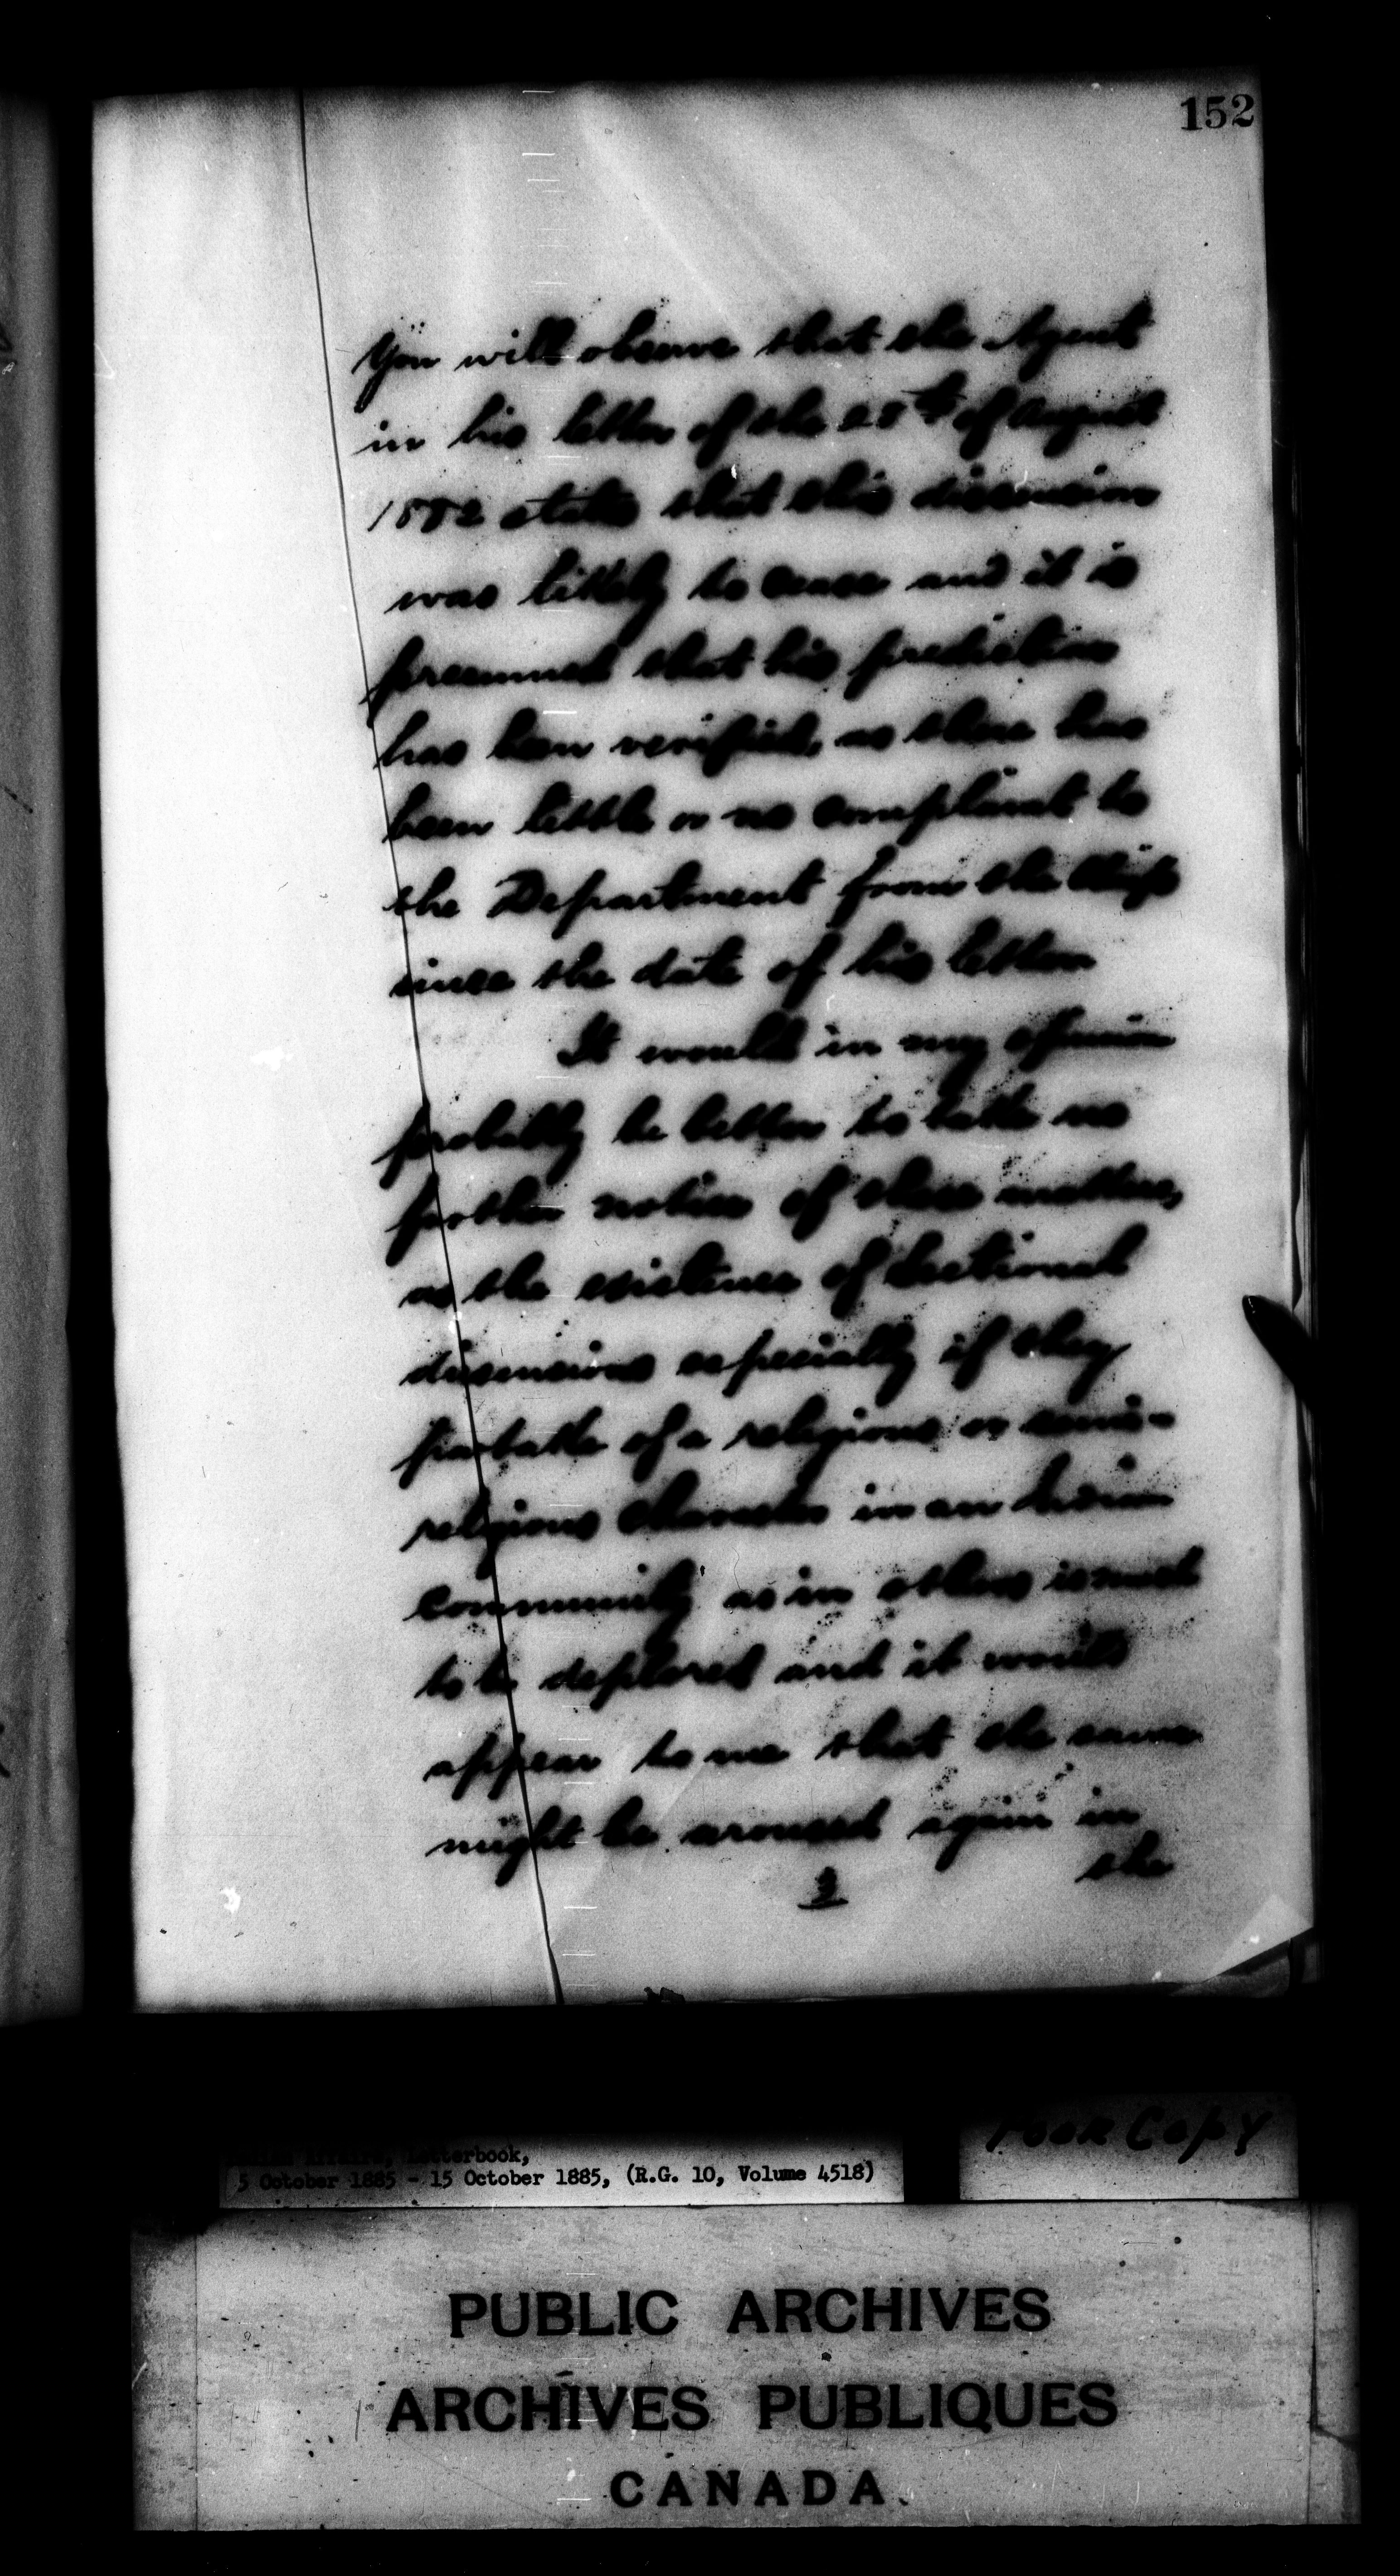 152
You will observe that the Agent
in his letter of the 28th of August
1882 states that this dissension
was likely to cease and it is
presumed that his prediction
has been verified, as there has
been little or no complaint to
the Department from the
since the date of his letter
It would in my opinion
probably be better to take no
further notice of these matters,
as the existence of sectional
dissensions especially if they
partake of a religious or semi-
religious character in an Indian
community as in others is much
to be deplored and it would
appear to me that the same
might be aroused again in
the
3
Letterbook,
5 October 1885 - 15 October 1885, (R.G. 10, Volume 4518)
Poor Copy
PUBLIC ARCHIVES
ARCHIVES PUBLIQUES
CANADA